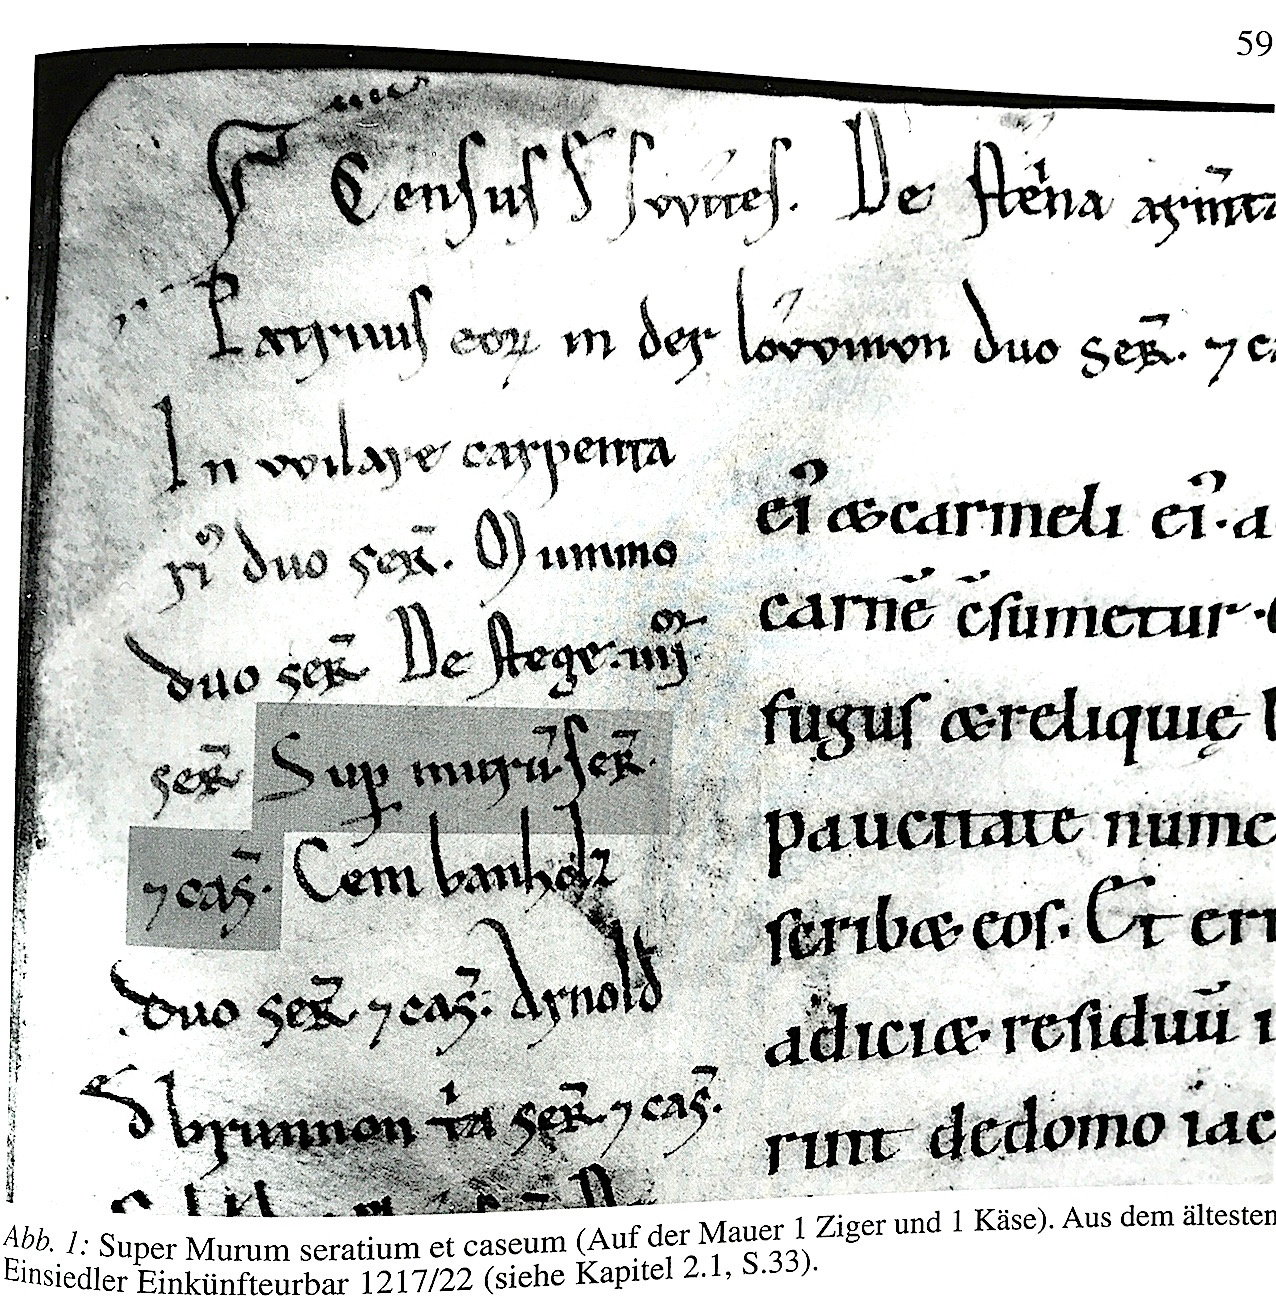 59
Census
De
Patruus eorꝝ in der duo ser̄. ⁊
In wilare carpenta
rı᷒ duo ser̄. Cummo
duo ser̄ De stege. iiij.
ser̄ Sup murū ser̄.
⁊ cas̄. Cem banholz
duo ser̄ ⁊ cas̄. Arnold
brunnon ser̄ ⁊ cas̄.
ei᷒ & carmeli ei᷒. a
carnē c̄sumetur.
fugus & reliquię
paucitate nume
scribæ eos. Et eri
adiciæ residuū
runt dedomo iac
Abb. 1: Super Murum seratium et caseum (Auf der Mauer 1 Ziger und 1 Käse). Aus dem ältesten
Einsiedler Einkünfteurbar 1217/22 (siehe Kapitel 2.1, S.33).